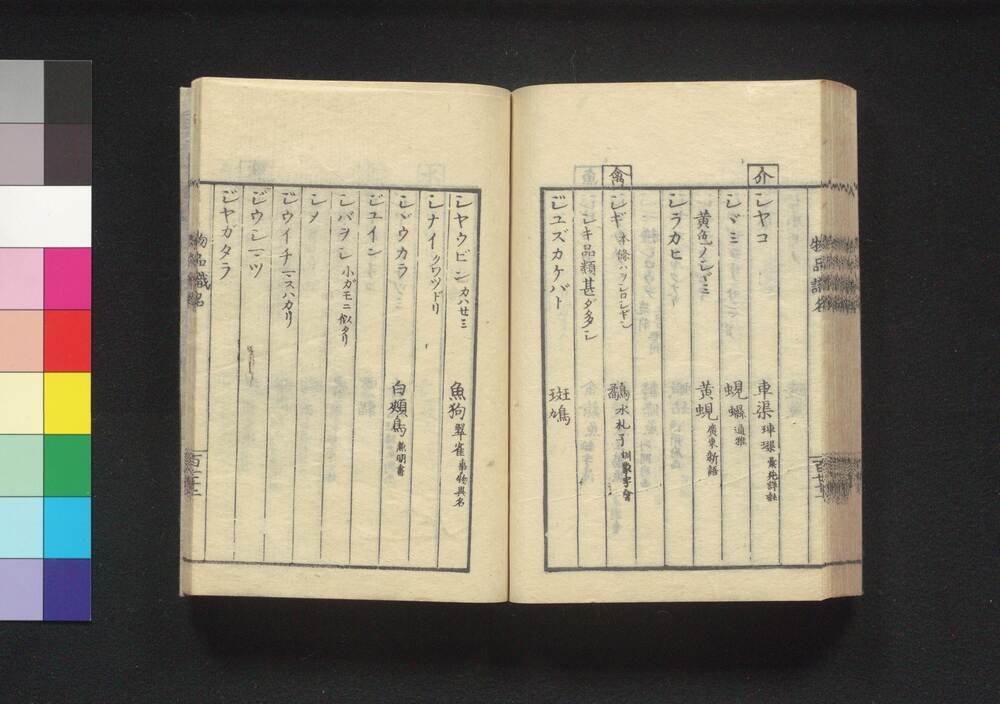 物品識名
介
シヤコ 車渠
シヾミ 蜆 蠣 通雅
黄色ノシヾミ 黄蜆 廣東新語
シラカヒ
禽
シギ 鷸 水札子 訓蒙字會
シギ品類甚ダ多シ
ジユズカケバト 斑鳩
シヤウビン カハセミ 魚狗 翠雀 事物異名
シナイ クワツドリ
シヾウカラ 白頰鳥
ジユイン
シバヲシ 小ガモニ似タリ
シメ
ジウイチ マスハカリ
ジウシマツ
ジヤガタラ
物品識名